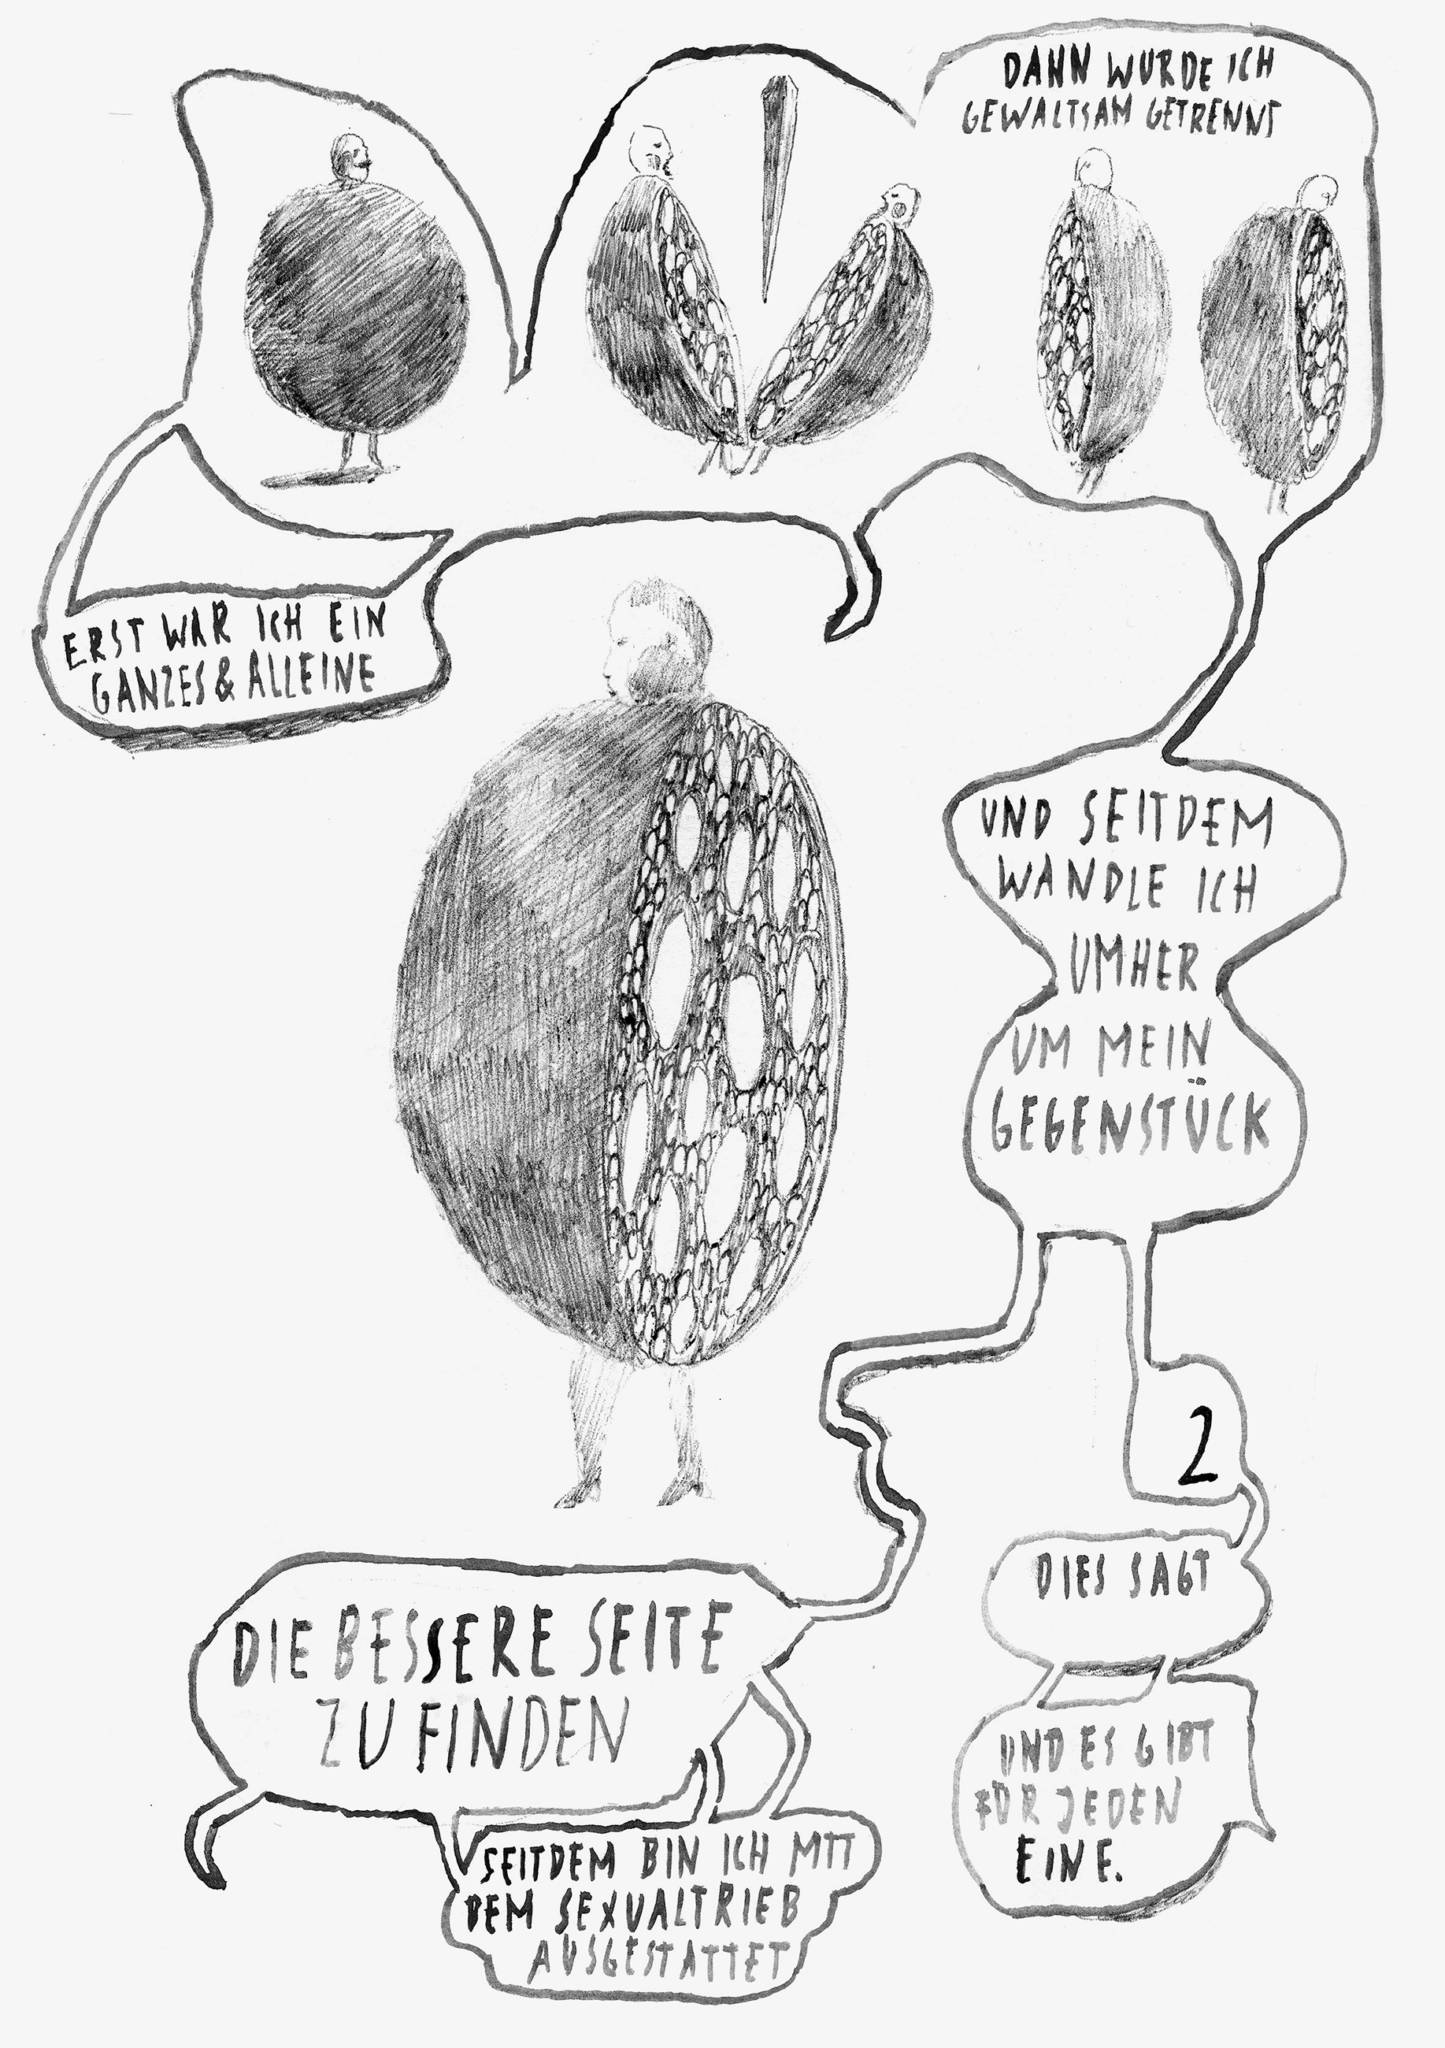 ERST WAR ICH EIN
GANZES & ALLEINE
DANN WURDE ICH
GEWALTSAM GETRENNT
UND SEITDEM
WANDLE ICH
UMHER
UM MEIN
GEGENSTÜCK
DIE BESSERE SEITE
ZU FINDEN
SEITDEM BIN ICH MIT
DEM SEXUALTRIEB
AUSGESTATTET
2
DIES SAGT
UND ES GIBT
FÜR JEDEN
EINE.